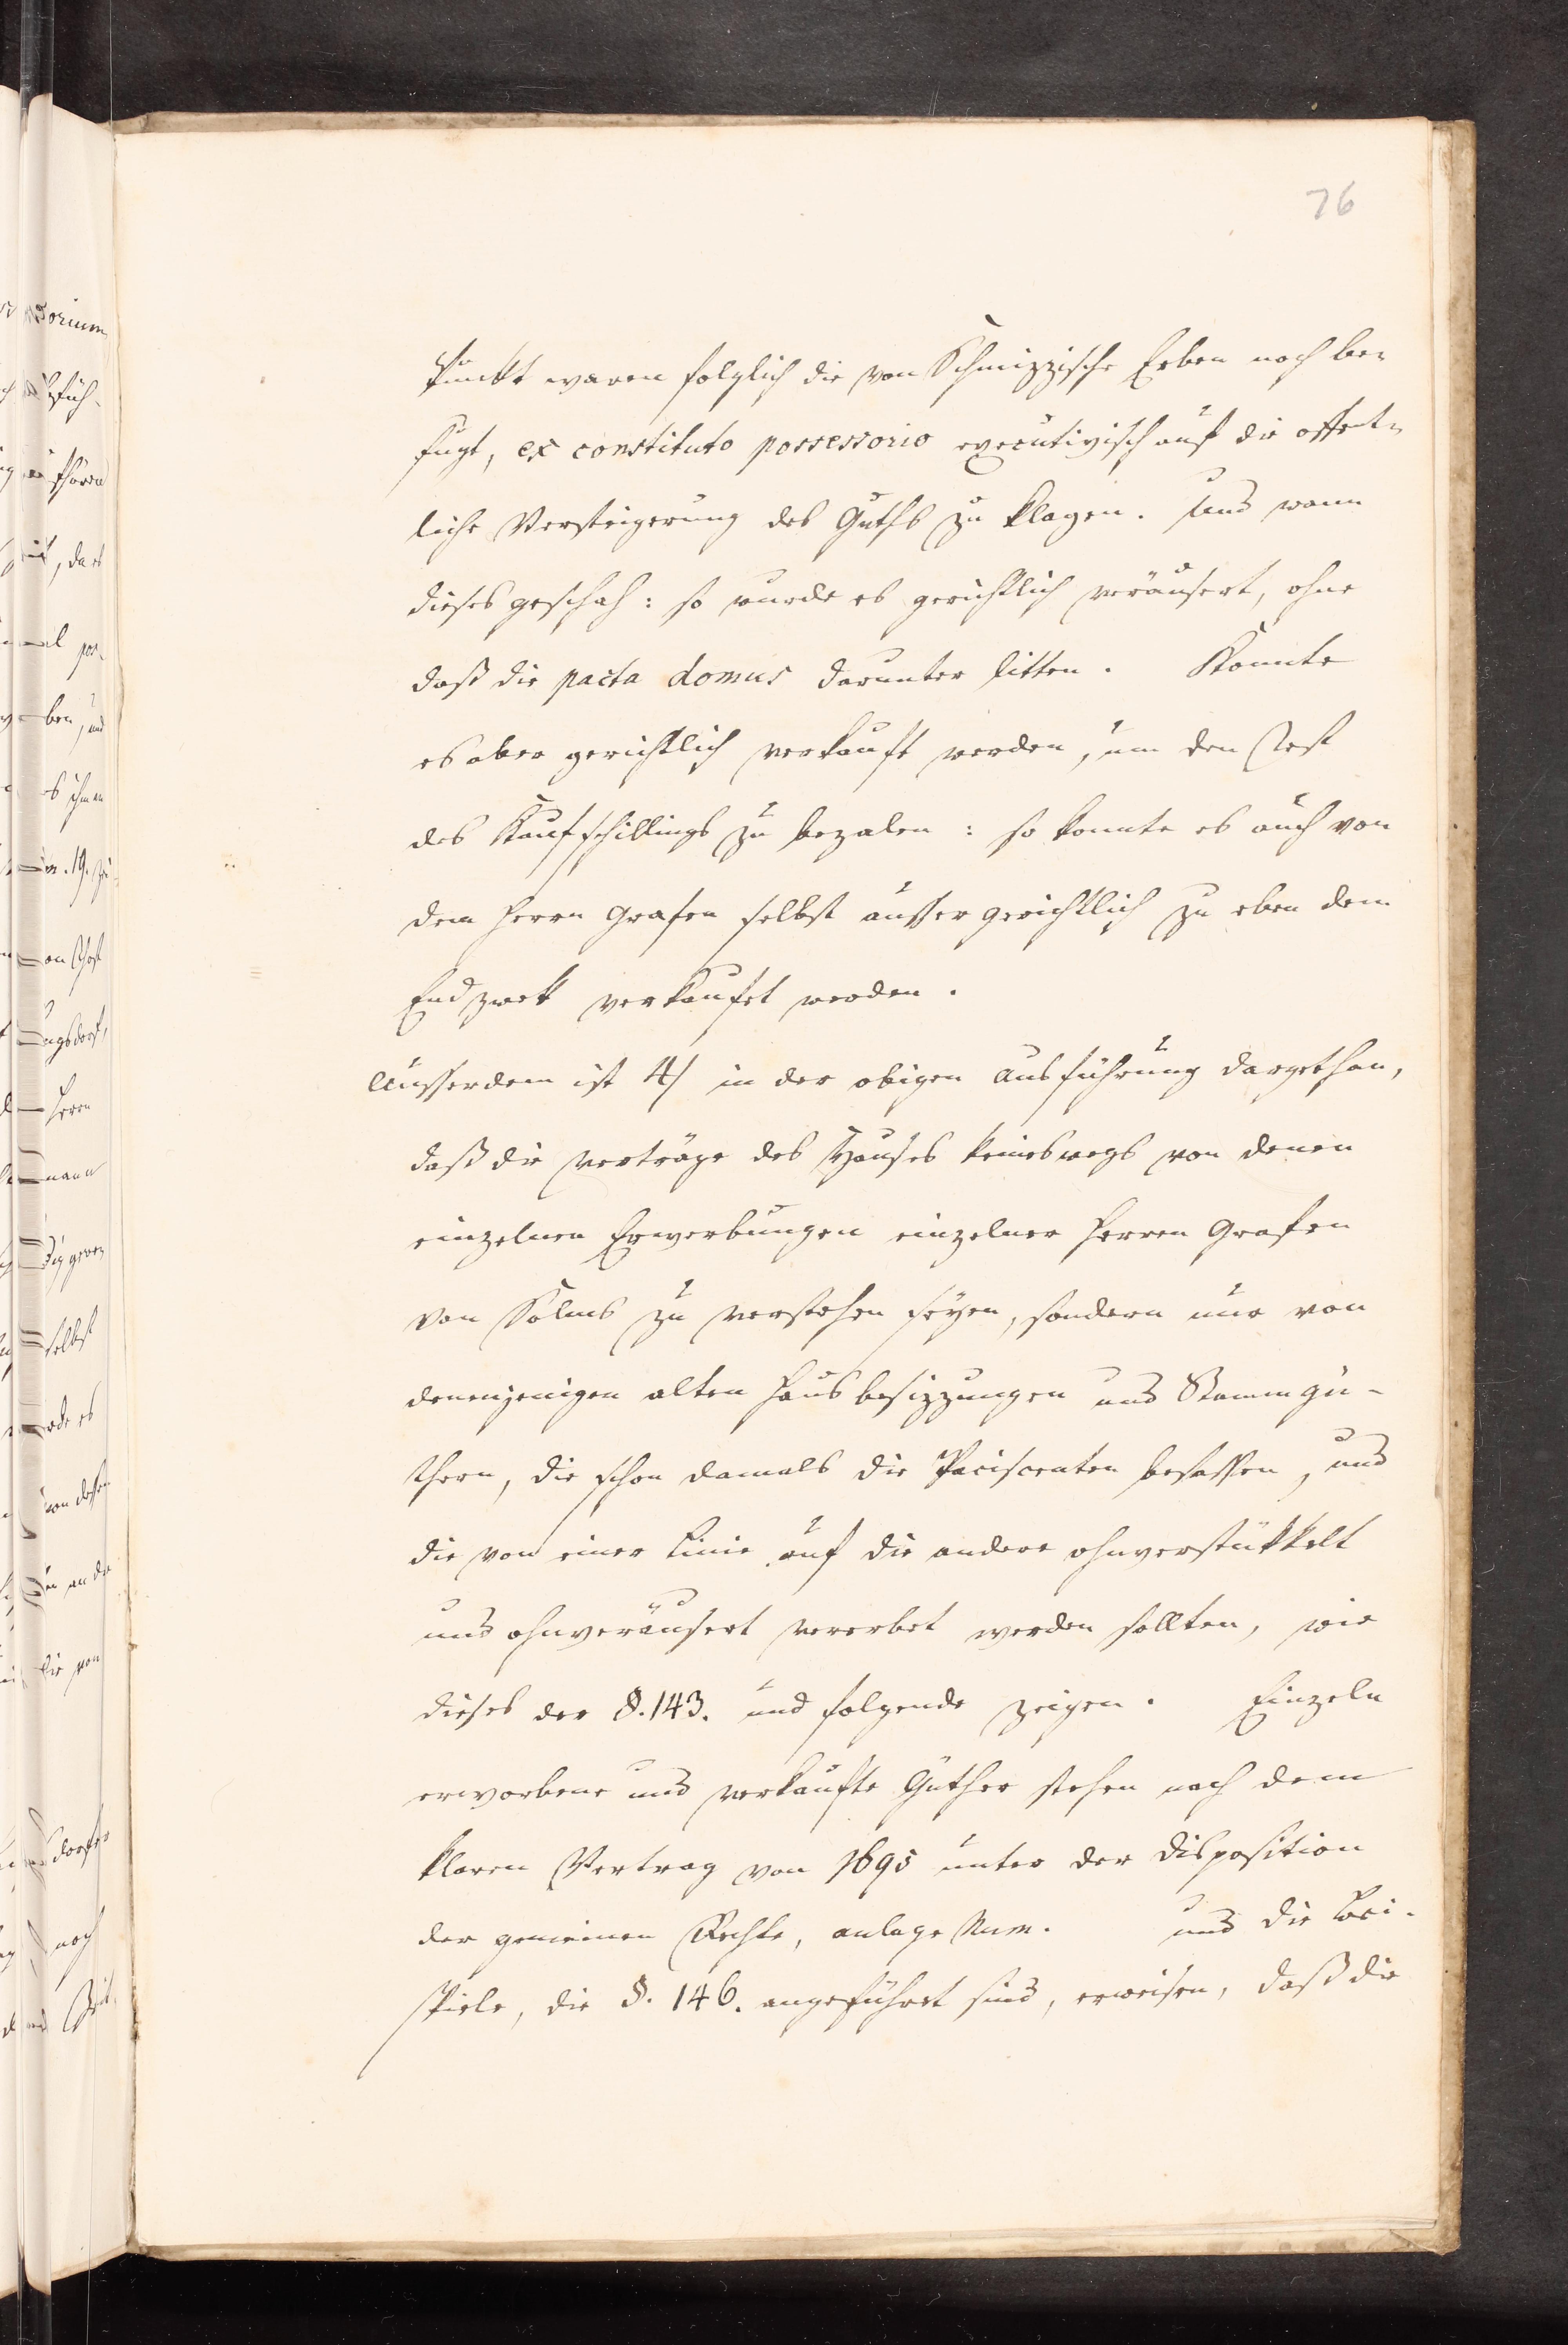 76
Punkt waren folglich die von Schmizzische Erben noch be-
fugt, ex constituto possessorio executivisch auf die offent-
liche Versteigerung des Guths zu klagen. Und wann
dieses geschah: so wurde es gerichtlich veräusert, ohne
daß die pacta domus darunter litten. Konnte
es aber gerichtlich verkauft werden, um den Rest
des Kaufschillings zu bezalen: so konnte es auch von
dem Herrn Grafen selbst aussergerichtlich zu eben dem
Endzwek verkaufet werden.
Ausserdem ist 4/ in der obigen Ausführung dargethan,
daß die Verträge des Hauses keineswegs von denen
einzelnen Erwerbungen einzelner Herren Grafen
von Solms zu verstehen seyen, sondern nur von
denenjenigen alten Hausbesizzungen und Stammgü-
thern, die schon damals die Paciscenten besassen, und
die von einer Linie auf die andere ohnverstükkelt
und ohnveräusert vererbet werden sollten, wie
dieses der §. 143. und folgende zeigen. Einzeln
erworbene und verkaufte Güther stehen nach dem
klaren Vertrag von 1695 unter der Disposition
der gemeinen Rechte, Anlage Num. und die Bei-
spiele, die §. 146. angeführt sind, erweisen, daß die